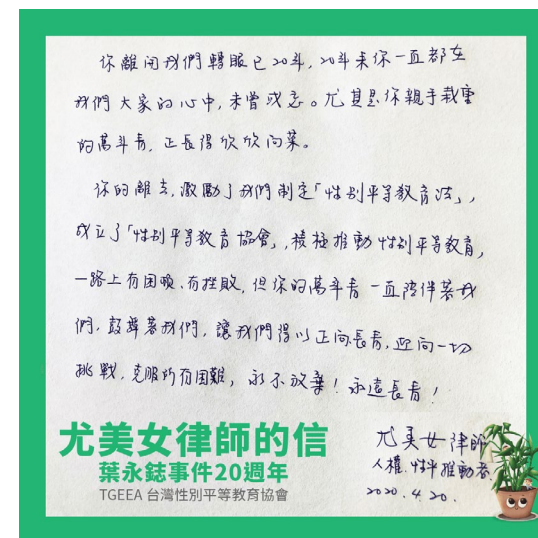 你離開我們轉眼已20年,20年來你一直都在
我們大家的心中,未曾或忘。尤其是你親手栽種
的萬年青,正長得欣欣向榮。
你的離去,激勵了我們制定「性別平等教育法」,
成立了「性別平等教育協會」,積極推動性別平等教育,
一路上有困頓、有挫敗,但你的萬年青一直陪伴著我
們,鼓舞著我們,讓我們得以正向長青,迎向一切
挑戰,克服所有困難,永不放棄!永遠長青!
尤美女律師
人權、性平推動者
2020.4.20.
尤美女律師的信
葉永鋕事件20週年
TGEEA 台灣性別平等教育協會